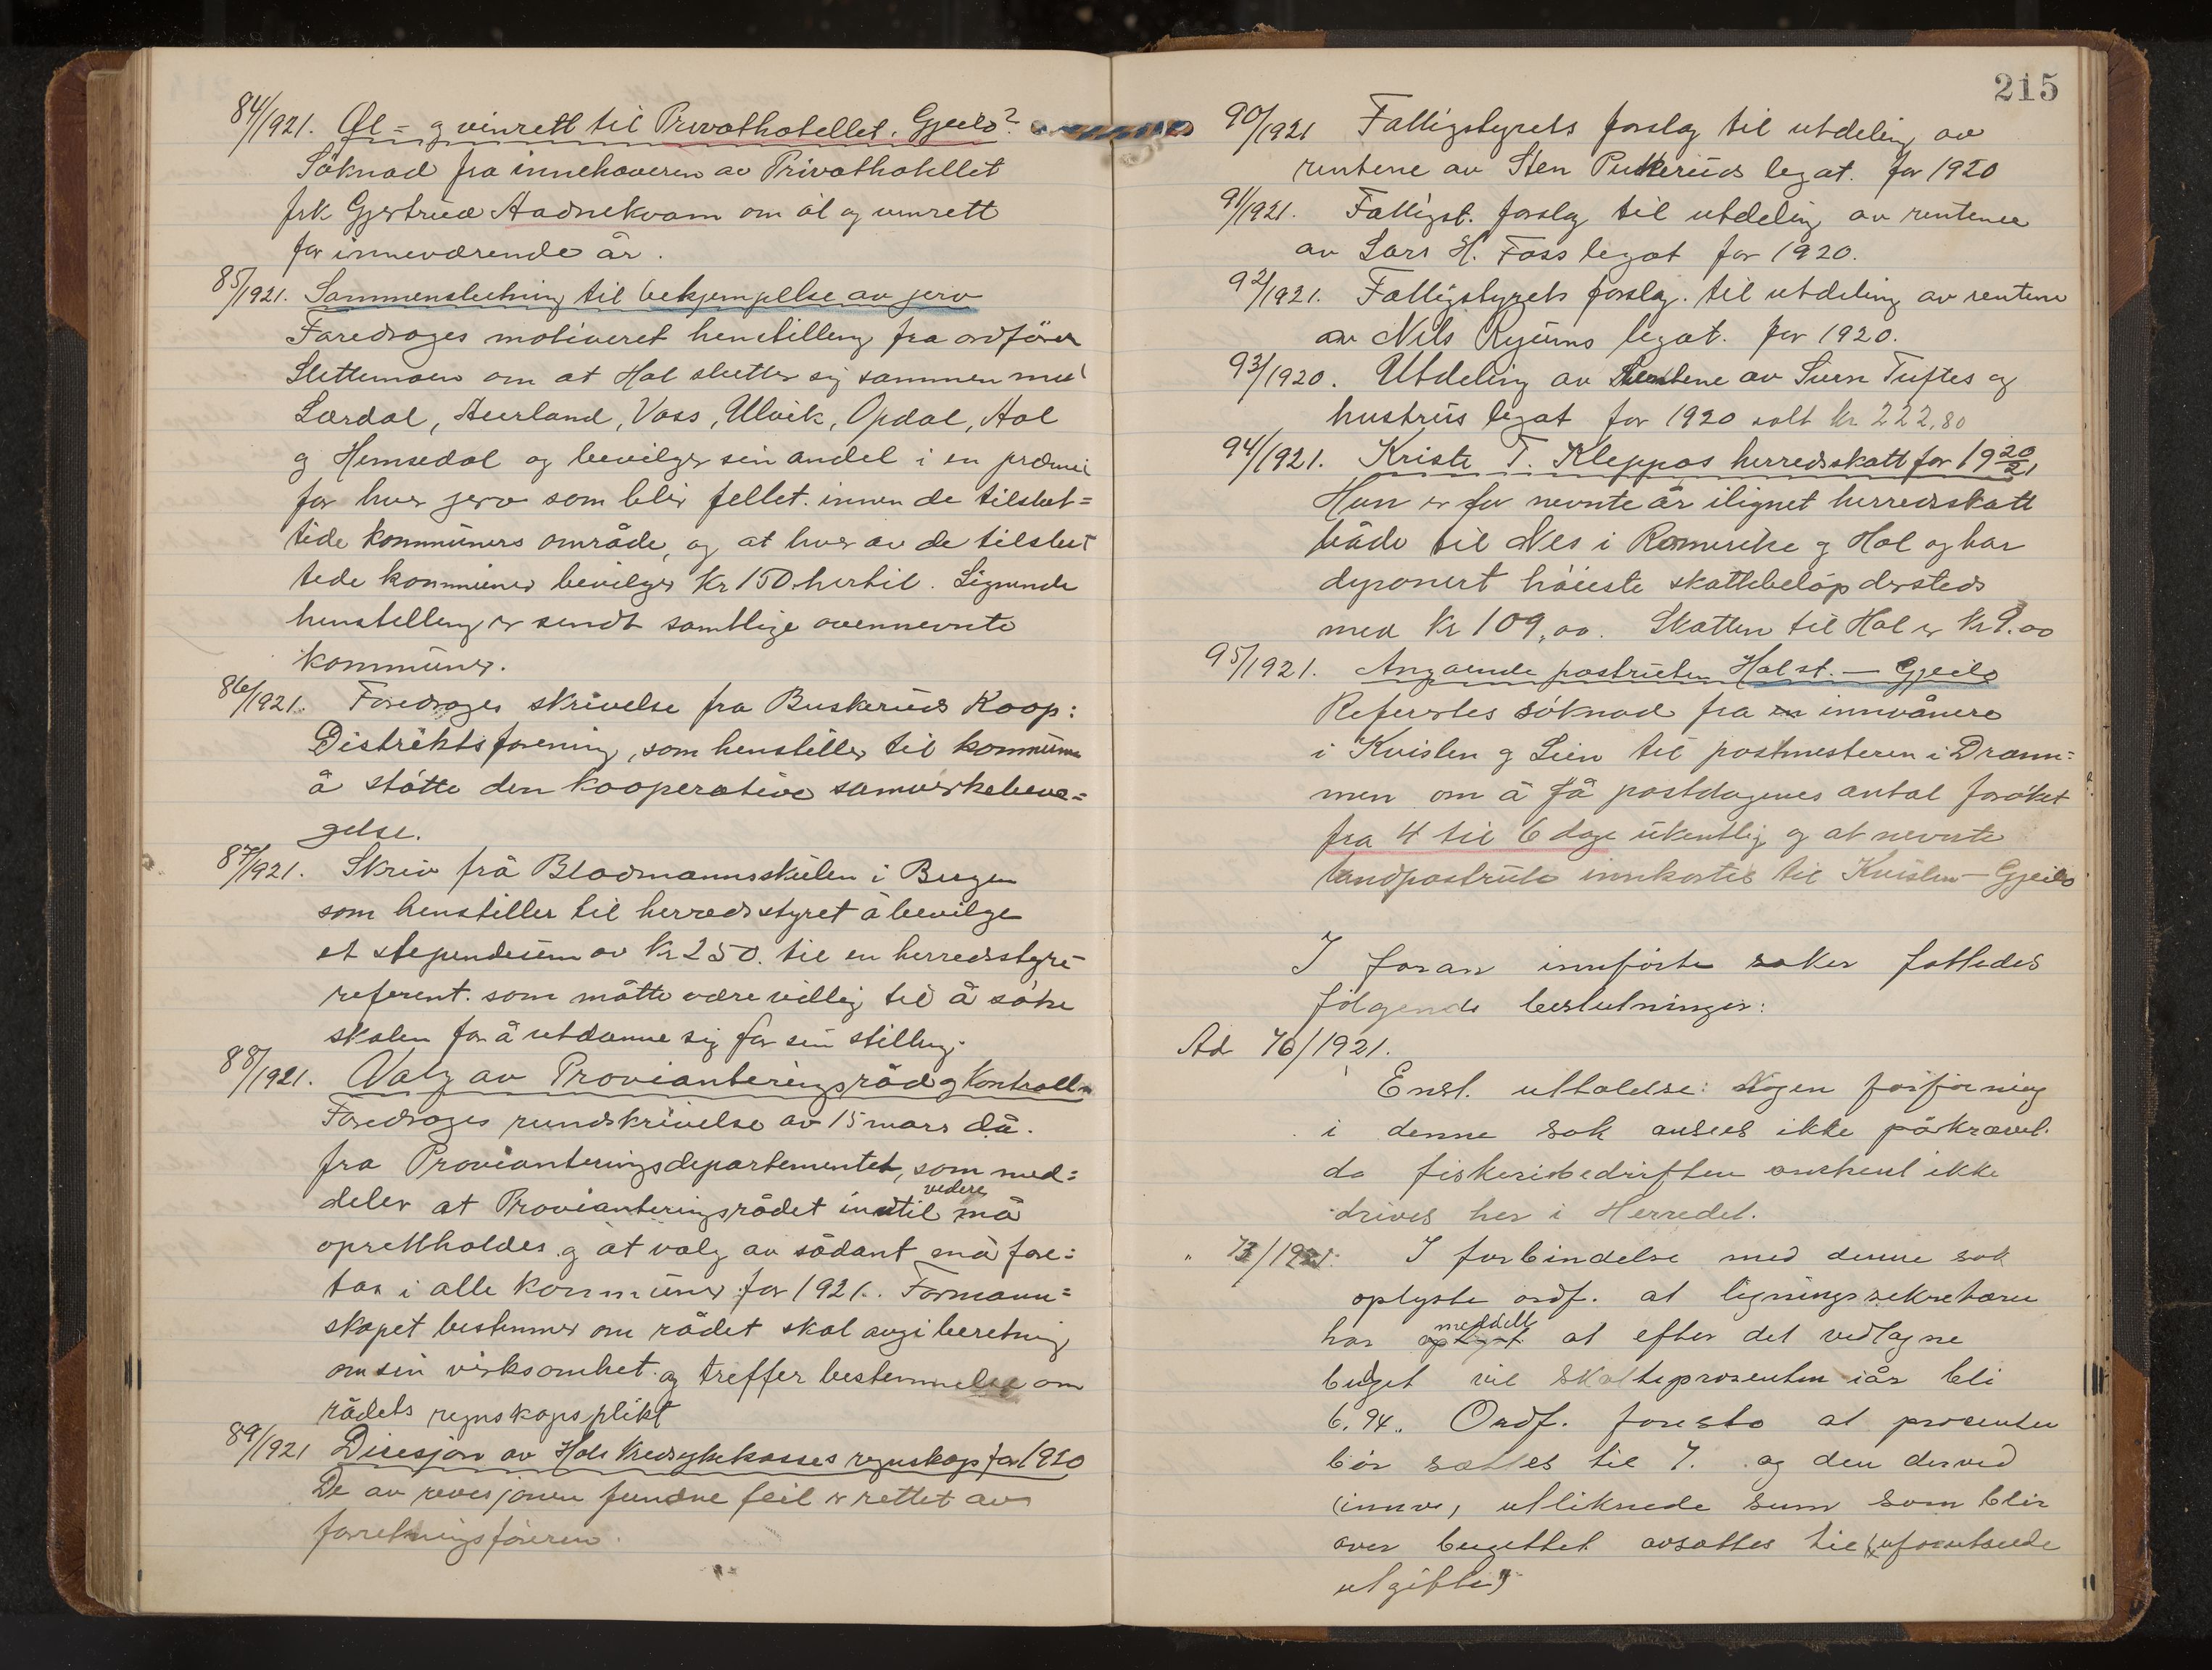 84/1921. Øl = og vinrett til Privathotellet, Gjeilo?
Söknad fra innehaveren av Privathotellet
frk Gjertrud Aadnekvam om öl og vinrett
for inneværende år.
85/1921. Sammenslutning til bekjempelse av jerv
Foredroges motiveret henstilling fra ordförer
Slettemoen om at Hol slutter sig sammen med
Lærdal, Aurland, Voss, Ulvik, Opdal, Hol
og Hemsedal og bevilger sin andel i en præmie
for hver jerv som blir fellet innen de tilslut=
tede kommuners område, og at hver av de tilslut
tede kommuner bevilger Kr 150 hertil. Lignende
henstilling er sendt samtlige ovennevnte
kommuner.
86/1921. Foredroges skrivelse fra Buskeruds Koop:
Distriktsforening, som henstiller til kommunene
å stötte den kooperative samvirkebeve=
gelse.
87/1921. Skriv frå Bladmannsskulen i Bergen
som henstiller til herredsstyret å bevilge
et stependium av Kr 250. til en herredsstyre
referent som måtte være villig til å söke
skolen for å utdanne sig for sin stilling.
88/1921. Valg av Provianteringsråd og Kontroll
Foredroges rundskrivelse av 15 mars då.
fra Provianteringsdepartementet, som med=
deler at Provianteringsrådet inntil videre må
oprettholdes og at valg av sådant må fore=
tas i alle kommuner for 1921. Formann=
skapet bestemmer om rådet skal avgi beretning
om sin virksomhet og treffer bestemmelse om
rådets regnskapsplikt
89/1921 Desisjon av Hols Kredssykekasses regnskap for 1920
De av revisjonen fundne feil er rettet av
forretningsföreren.
215
90/1921 Fattigstyrets forslag til utdeling av
rentene av Sten Pukeruds legat. for 1920
91/1921. Fattigst. forslag til utdeling av rentene
av Lars H. Foss legat for 1920.
92/1921. Fattigstyrets forslag til utdeling av rentene
av Nils Ryeims legat. for 1920.
93/1920. Utdeling av Rentene av Svein Tuftes og
hustrus legat for 1920 valt kr 222,80
94/1921. Kristi T. Kleppos herredsskatt for 1920/21
Hun er for nevnte år ilignet herredsskatt
både til Nes i Romerike og Hol og har
deponert höieste skattebelöp dersteds
med Kr 109,00. Skatten til Hol er Kr 9.00
95/1921. Angaaende postruten Hol st. — Gjeilo
Refertes söknad fra en innvånere
i Kvislen og Lien til postmesteren i Dram=
men om å få postdagenes antal forøket
fra 4 til 6 dage ukentlig og at nevnte
landpostrute innkortes til Kvislen — Gjeilo
I foran innförte saker fattedes
fölgende beslutninger:
Ad 76/1921.
Enst. uttalelse: Nogen forföining
i denne sak ansees ikke påkrævet.
da fiskeribedriften omtrent ikke
drives her i Herredet.
" 73/1921. I forbindelse med denne sak
oplyste ordf. at ligningssekretæren
har oplyst meddelt at efter det vedtagne
budget vil skatteprosenten iår bli
6.94. Ordf. foreslo at prosenten
bör sættes til 7. og den derved
(innv, utliknede sum som blir
over bugettet avsættes til "uforutseede
utgifter"